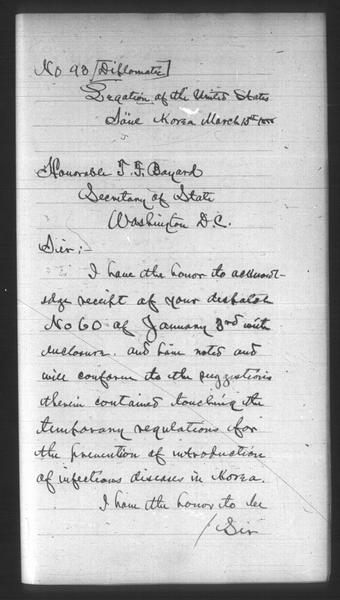 No 93 [Diplomatic]
Legation of the United States
Söul Korea March 15th
Honorable T. F. Bayard
Secretary of State
Washington D.C.
Sir:-
I have the honor to acknowl-
edge receipt of your despatch
No 60 of January 3rd with
enclosure. and have noted and
will conform to the suggestions
therein contained touching the
temporary regulations for
the prevention of introduction
of infectious diseases in Korea.
I have the honor to be
Sir